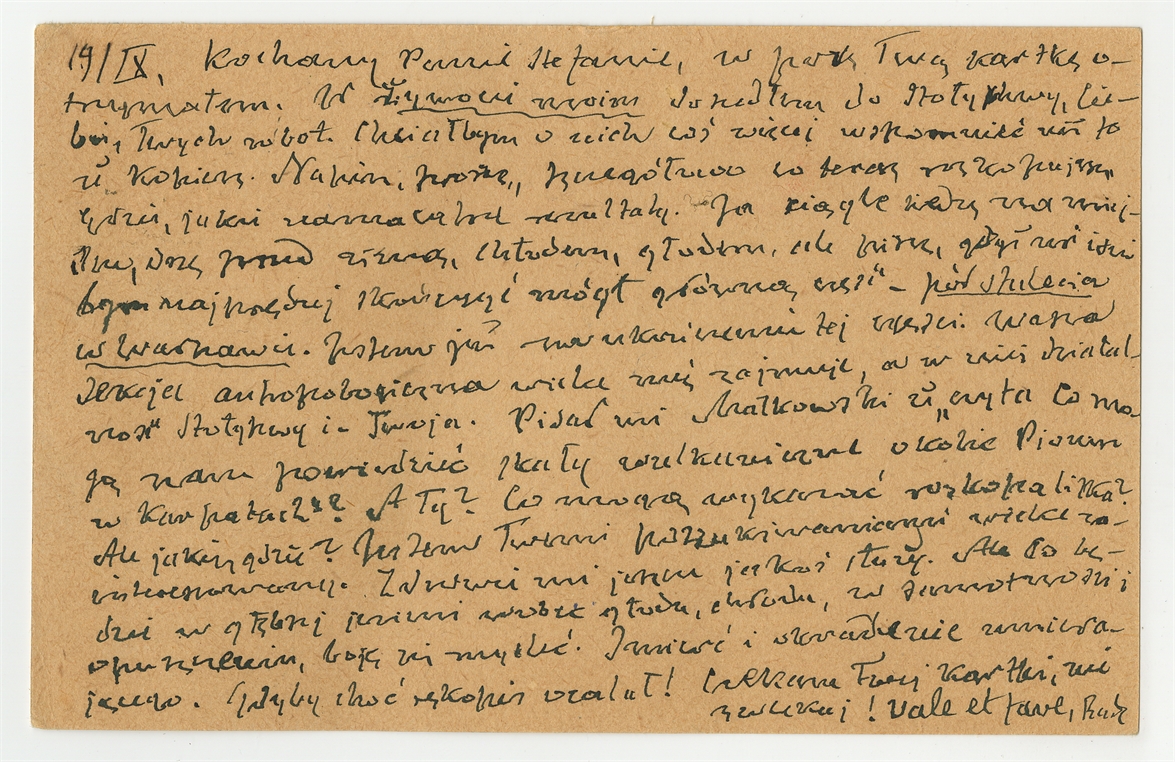 19/IX, Kochany Panie Stefanie, w porę Twą kartkę o-
trzymałem. W Żywocie moim doszedłem do Stołyhwy, Cie-
bie, Twych robót. Chciałbym o nich coś więcej wspomnieć niż to
u Kopiery. Napisz, proszę, szczegółowo co teraz rozkopujesz,
gdzie, jakie namacalne rezultaty. Ja ciągle siedzę na miej-
scu, drżę przed zimą, chłodem, głodem, ale piszę,
bym najprędzej skończyć mógł główną część - pół stulecia
w Warszawie. Jestem już na ukończeniu tej części. Wasza
sekcja antropologiczna wielce mię zajmuje, a w niej działal-
ność Stołyhwy i Twoja. Pisał mi Małkowski z „cyta Co ma-
ją nam powiedzieć skały wulkaniczne okolic Pienin
w Karpatach"? A Ty? Co mogą wykazać rozkopaliska?
Ale jakie, gdzie? Jestem Twemi poszukiwaniami wielce za-
interesowany. Zdrowie mi jeszcze jakoś służy. Ale co bę-
dzie w głębszej jesieni wobec głodu, chłodu, w samotności i
opuszczeniu, boję się myśleć. Śmierć i okradzenie umiera-
jącego. Gdyby choć rękopis ocalał! Czekam Twej kartki, nie
zwlekaj! Vale et fave,